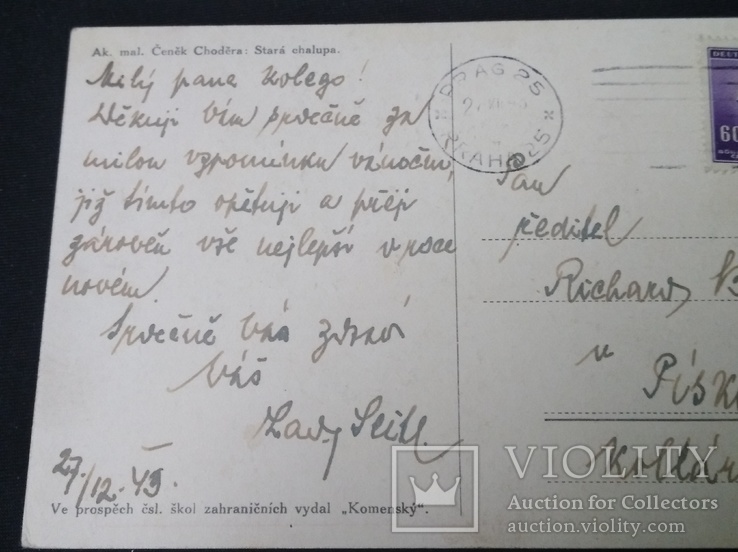 Ak. mal. Čeněk Choděra: Stará chalupa.
Milý pane kolego!
Děkuji Vám srdečně za
milou vzpomínku vánoční,
již tímto opětuji a přeji
zároveň vše nejlepší v roce
novém.
Srdečně Vás zdraví
Váš
Seitl
27./12.43.
Ve prospěch čsl. škol zahraničních vydal „Komenský“.
PRAG 25
PRAHA 25
60
Pan
ředitel
Richard
v
Písk
Kollár
VIOLITY
Auction for Collectors
auction.violity.com